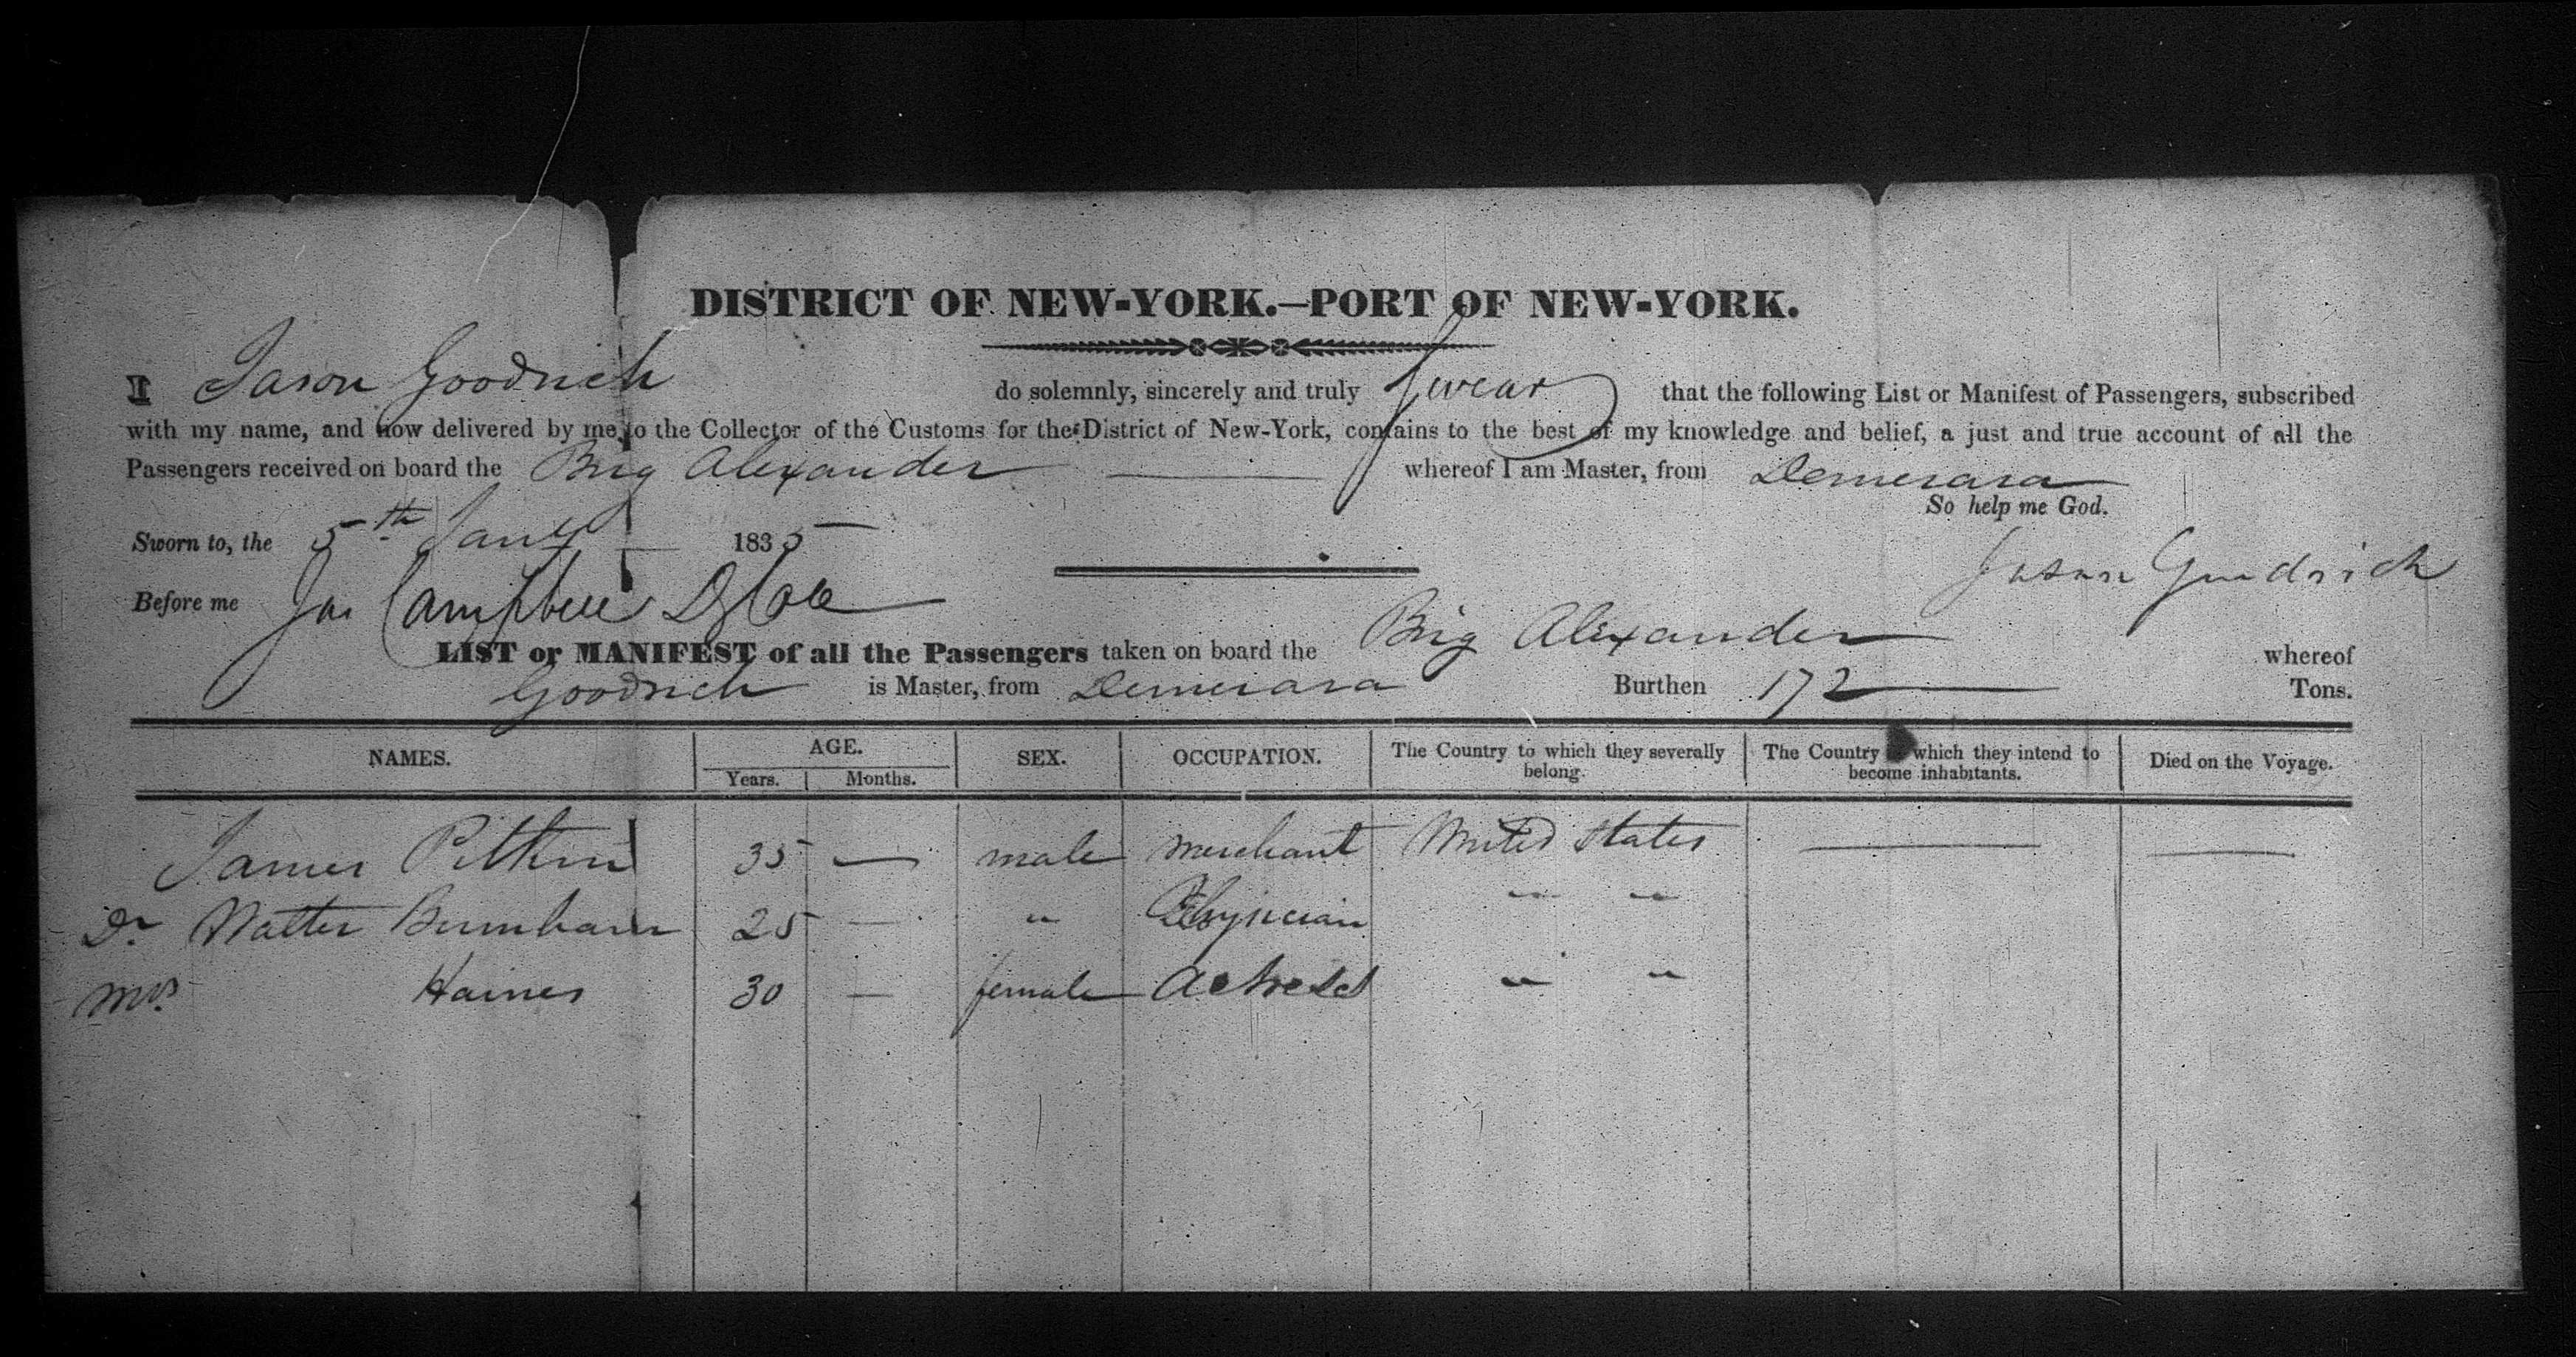 DISTRICT OF NEW-YORK.—PORT OF NEW-YORK.
I Jason Goodrich do solemnly, sincerely and truly swear that the following List or Manifest of Passengers, subscribed
with my name, and now delivered by me to the Collector of the Customs for the District of New-York, contains to the best of my knowledge and belief, a just and true account of all the
Passengers received on board the Brig Alexander — whereof I am Master, from Demerara
So help me God.
Sworn to, the 5th Jany — 1835
Jason Goodrich
Before me Jas Campbell D Col
LIST or MANIFEST of all the Passengers taken on board the Brig Alexander whereof
Goodrich is Master, from Demerara Burthen 172 — Tons.
NAMES. AGE. SEX. OCCUPATION. The Country to which they severally belong. The Country to which they intend to become inhabitants. Died on the Voyage.
Years. Months.
James Pitkin 35 — male merchant United States — —
Dr Walter Burnham 25 — " Physician " "
Mrs Haines 30 — female Actress " "